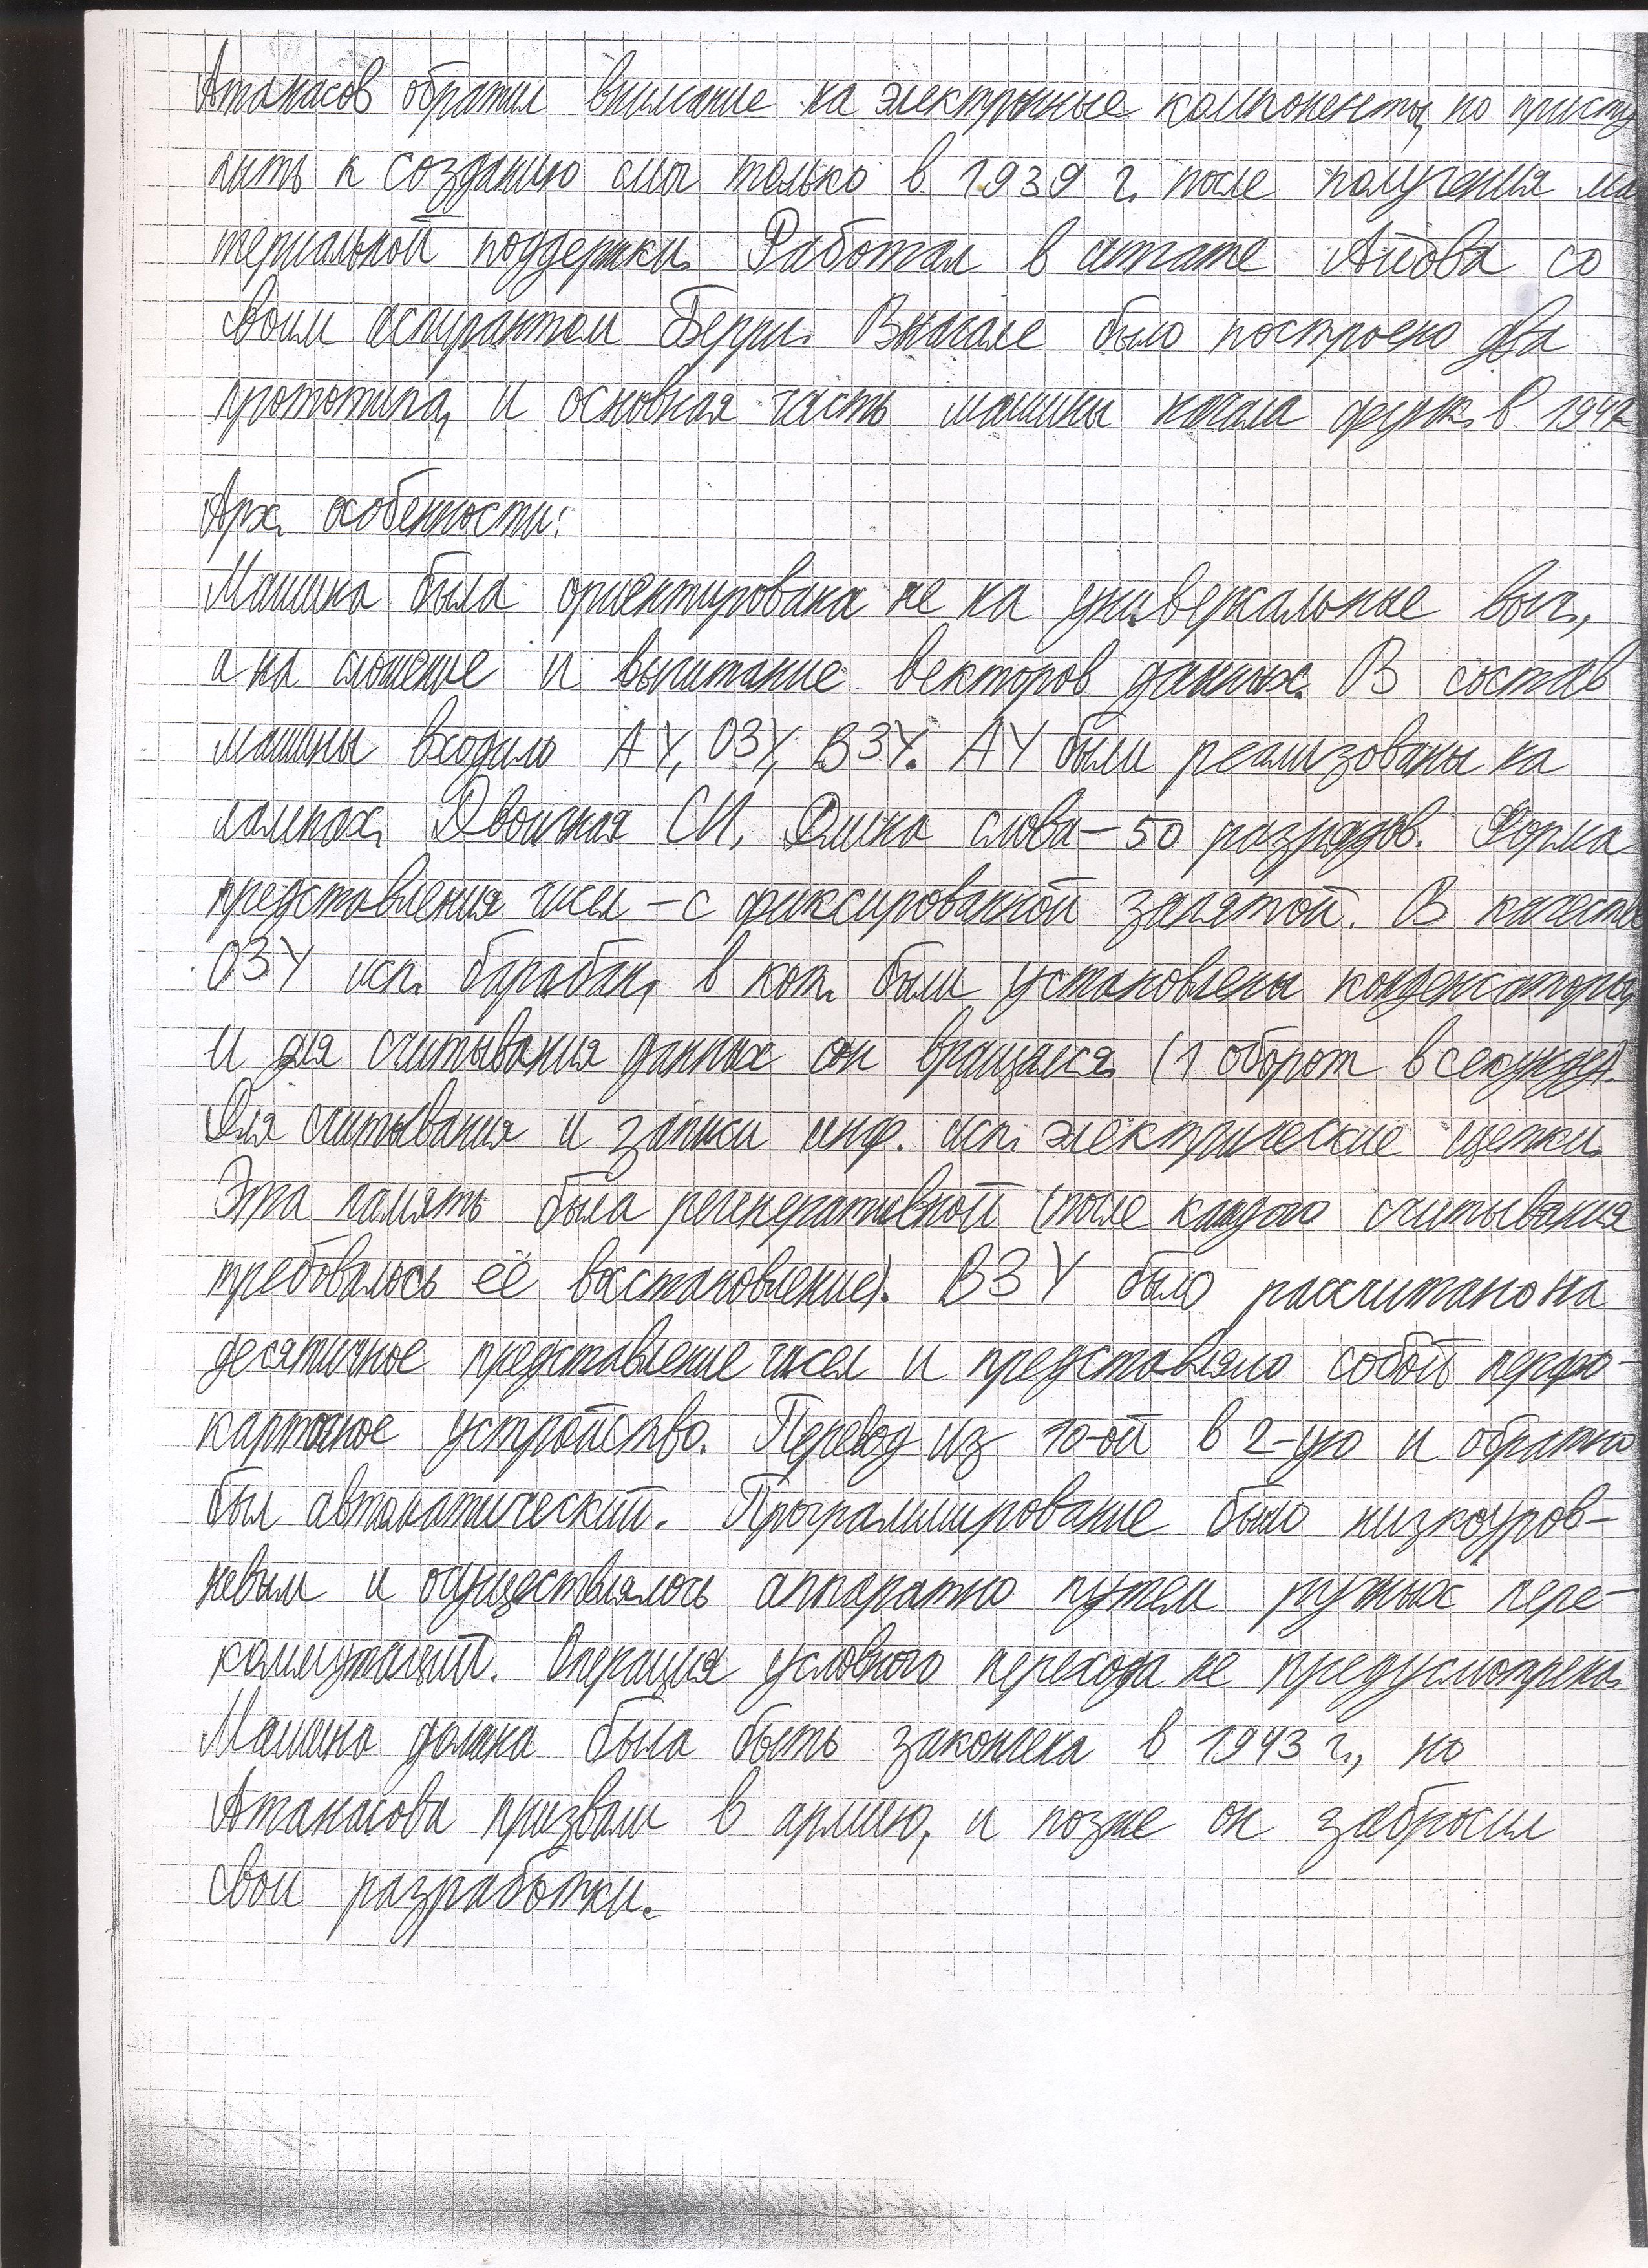 Атанасов обратил внимание на электронные компоненты, но присту
пить к созданию смог только в 1939 г. после получения ма
териальной поддержки. Работал в штате Айова со
своим аспирантом Берри. Вначале было построено два
прототипа, и основная часть машины начала функ. в 1942
Арх. особенности:
Машина была ориентирована не на универсальные выч.,
а на сложение и вычитание векторов данных. В состав
машины входило АУ, ОЗУ, ВЗУ. АУ были реализованы на
лампах. Двоичная СИ. Длина слова – 50 разрядов. Форма
представления чисел – с фиксированной запятой. В качестве
ОЗУ исп. барабан, в кот. были установлены конденсаторы,
и для считывания данных он вращался (1 оборот в секунду).
Для считывания и записи инф. исп. электрические щетки.
Эта память была регенеративной (после каждого считывания
требовалось её восстановление). ВЗУ было рассчитано на
десятичное представление чисел и представляло собой перфо-
карточное устройство. Перевод из 10-ой в 2-ую и обратно
был автоматический. Программирование было низкоуров-
невым и осуществлялось аппаратно путем ручных пере-
коммутаций. Операция условного перехода не предусмотрена.
Машина должна была быть закончена в 1943 г., но
Атанасова призвали в армию, и позже он забросил
свои разработки.